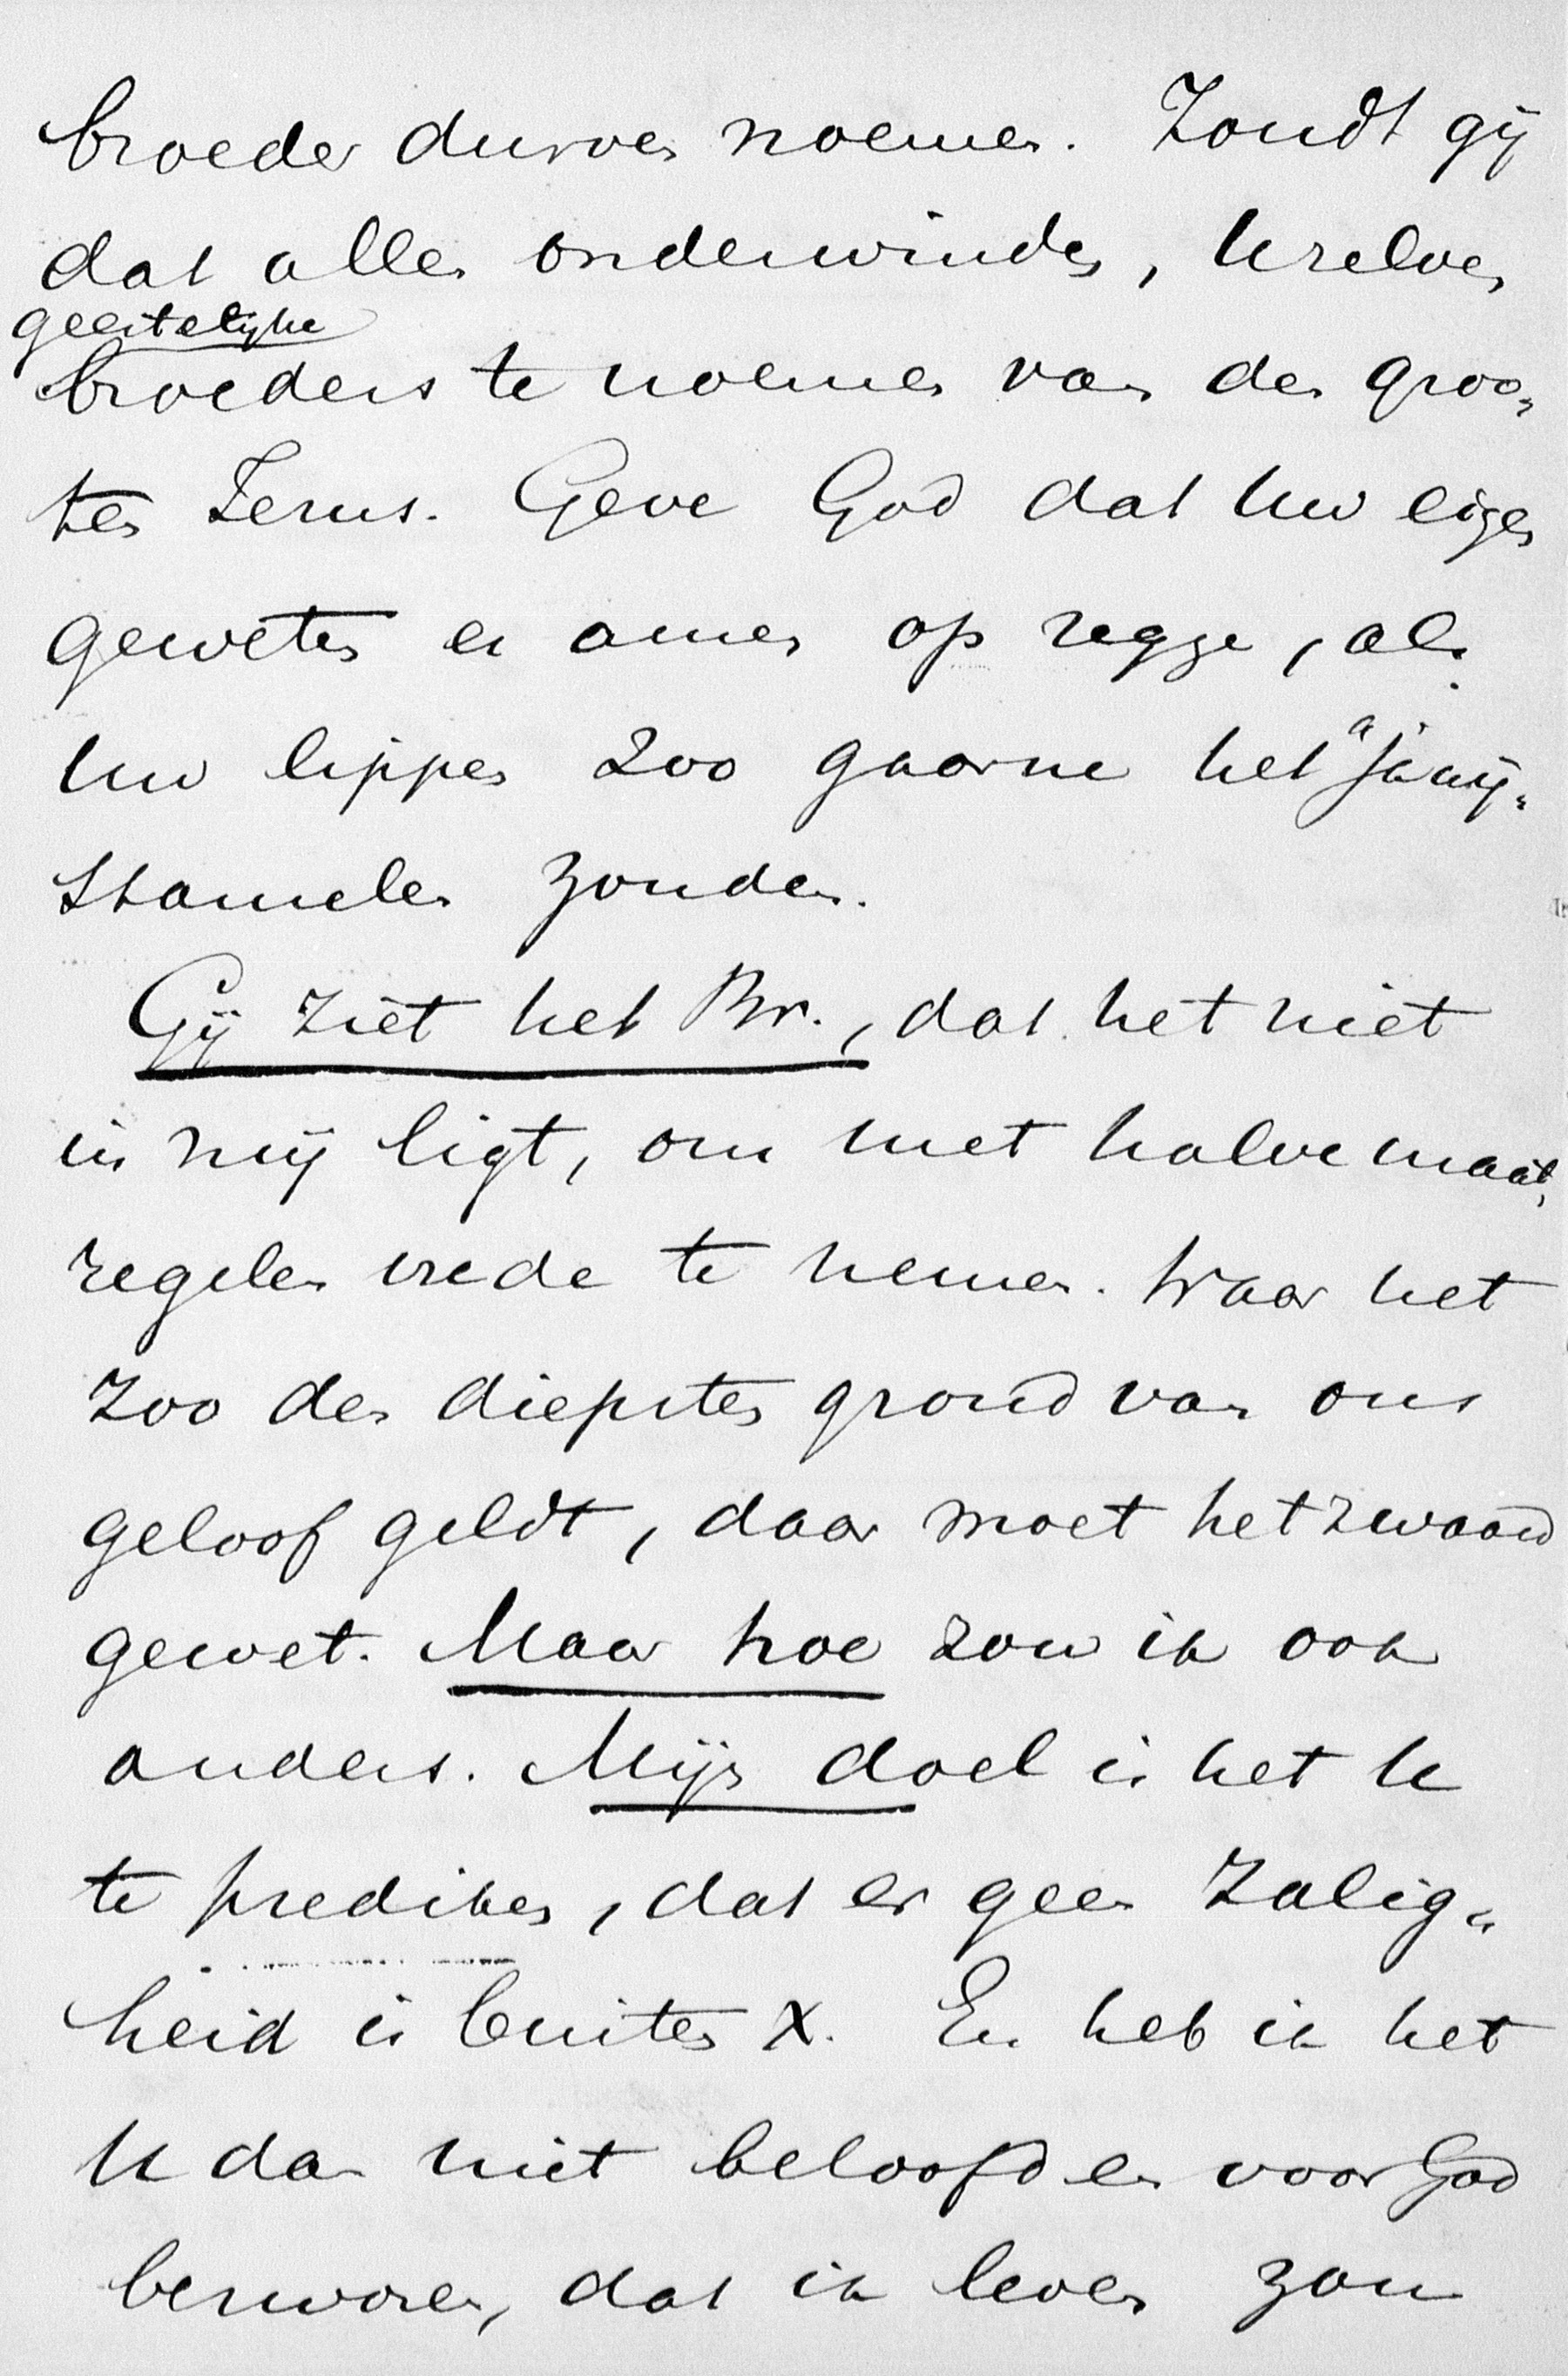 broeder durven noemen. Zoudt gij
dat alles onderwinden, U zelven
geestelijke
broeders te noemen van den groo„
ten Jezus. Geve God dat Uw eigen
geweten er amen op zegge, als
Uw lippen zoo gaarne het "ja wij"
stamelen zouden.
Gij ziet het Br., dat het niet
in mij ligt, om met halve maat„
regelen vrede te nemen. Waar het
zoo den diepsten grond van ons
geloof geldt, daar moet het zwaard
gewet. Maar hoe zou ik ook
anders. Mijn doel is het U
te prediken, dat er geen Zalig„
heid is buiten X. En heb ik het
U dan niet beloofd en voor God
bezworen, dat ik leven zou